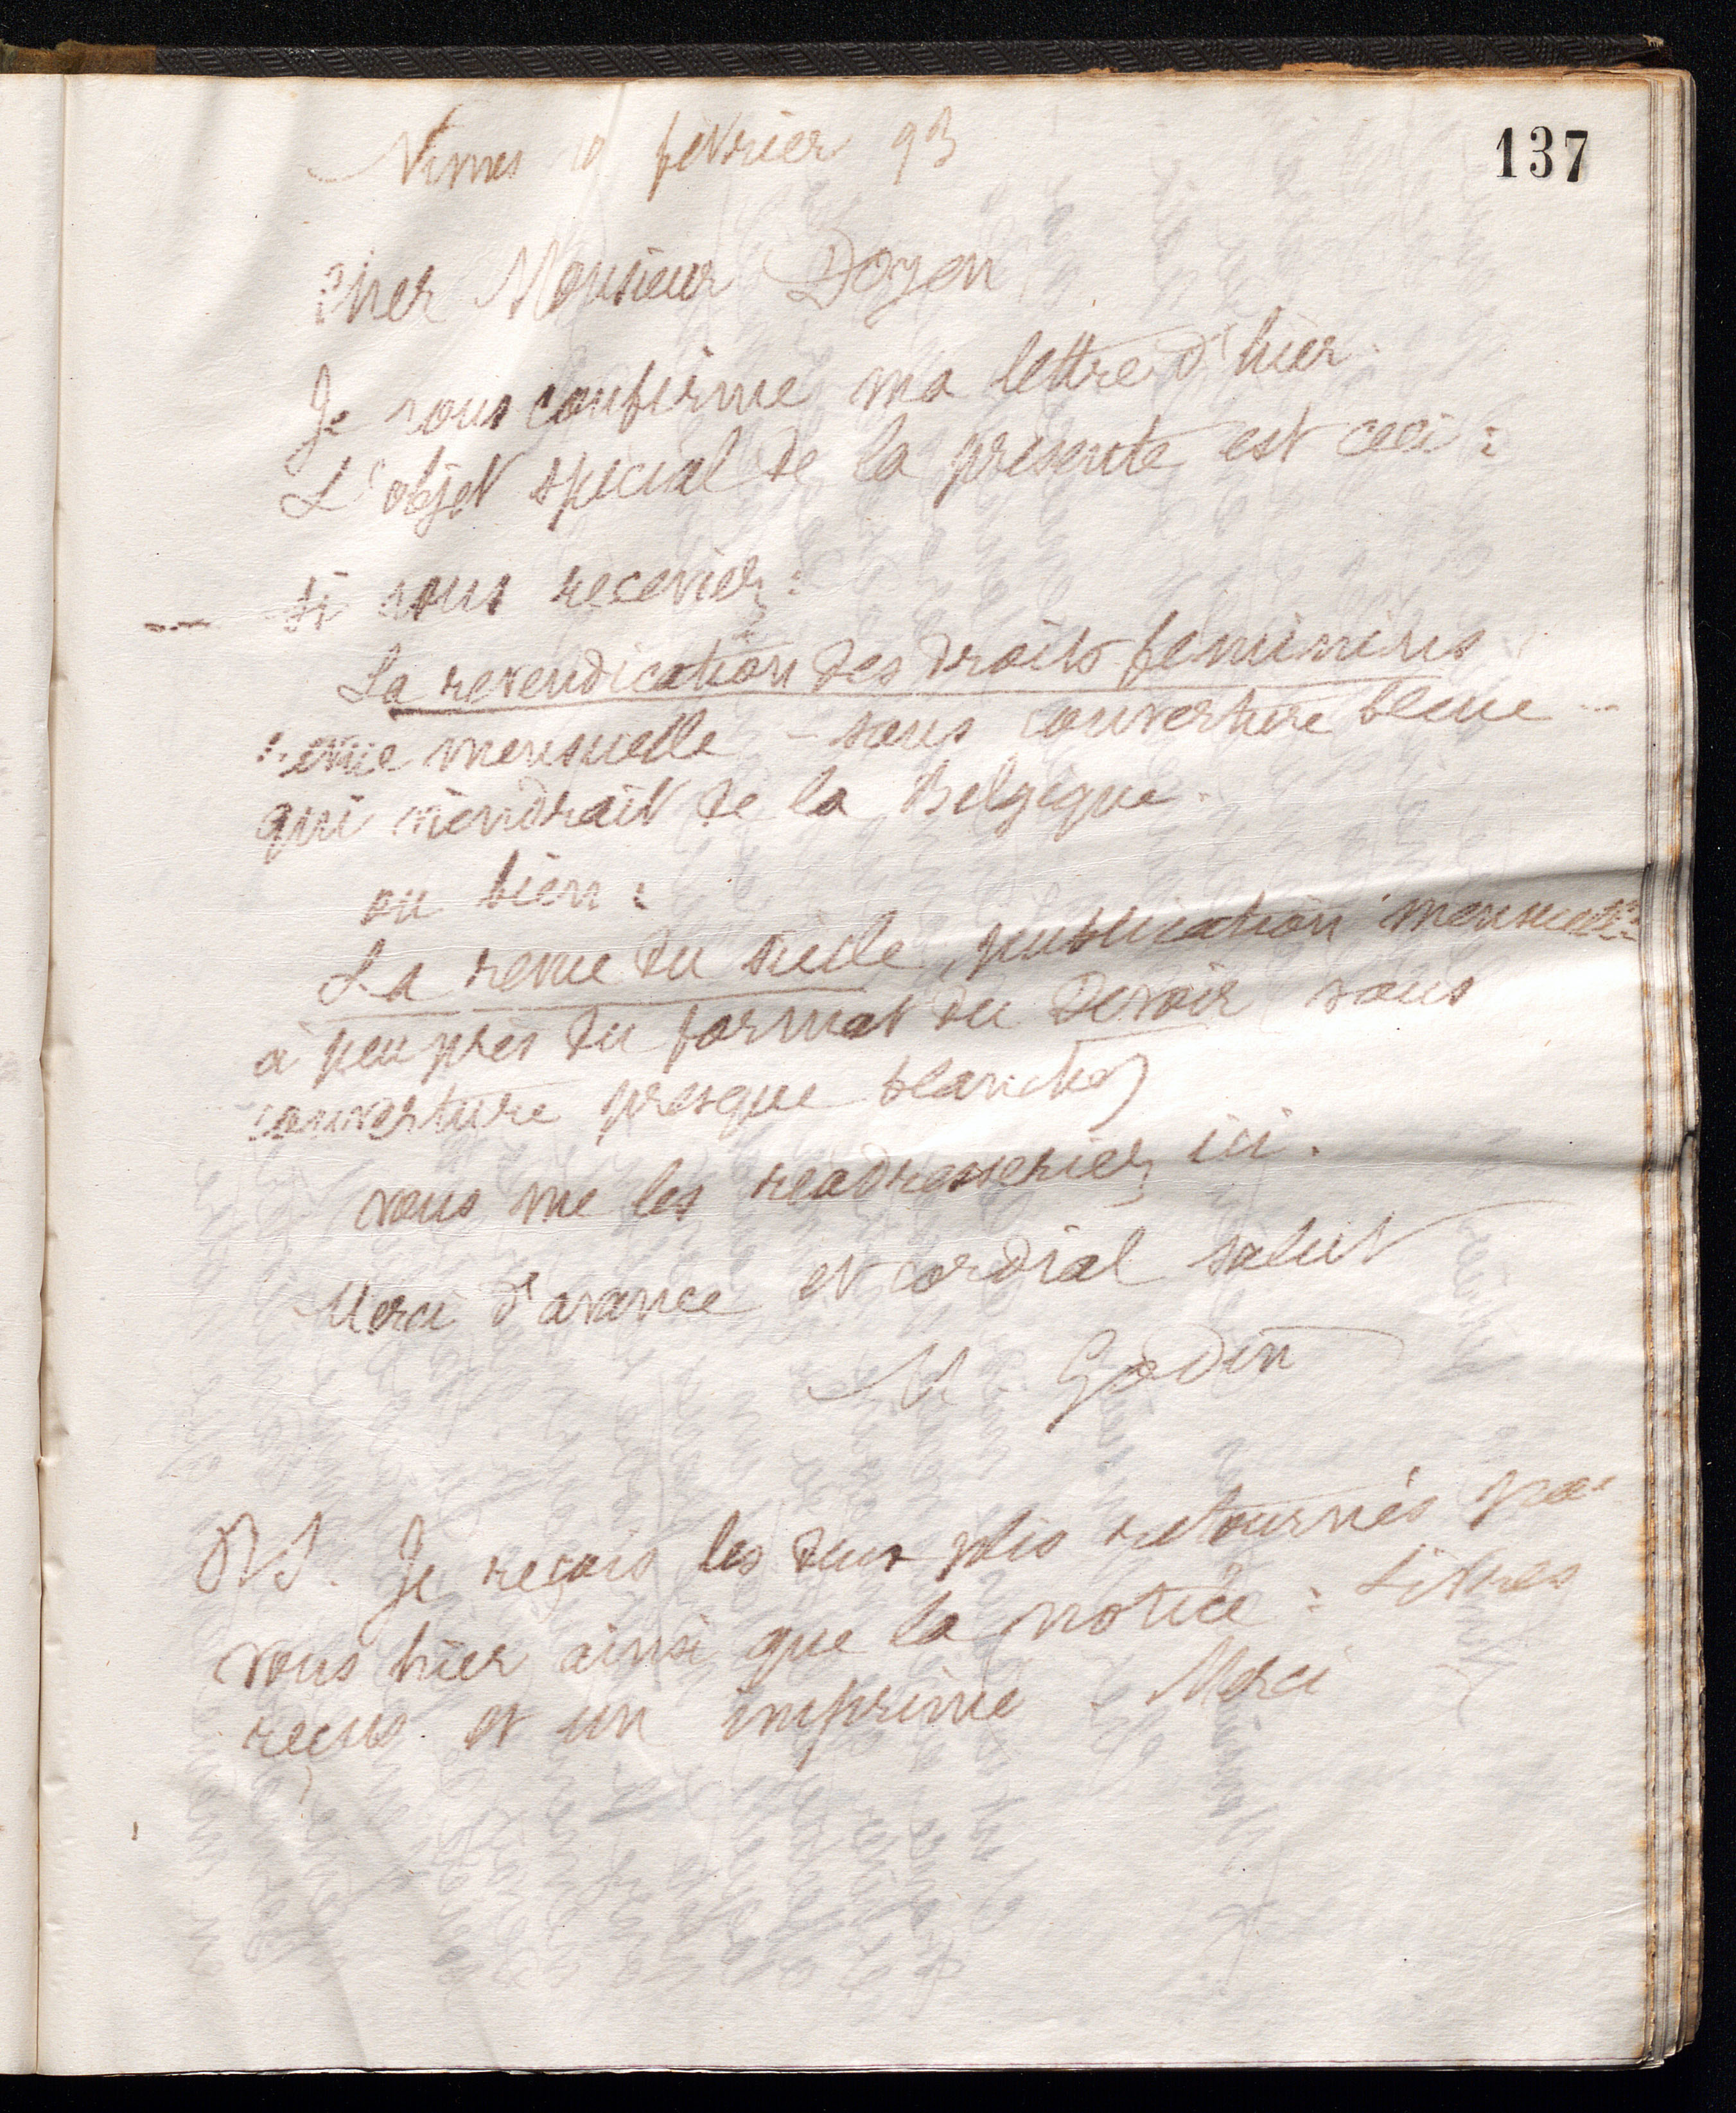 137
Nimes 10 février 93
Cher Monsieur Doyen,
Je vous confirme ma lettre d'hier.
L'objet spécial de la présente est ceci :
si vous receviez :
La revendication des droits feminins
revue mensuelle - sous couverture bleue
qui viendrait de la Belgique.
ou bien :
La revue du siècle, publication mensuelle
à peu près du format du Devoir sous
couverture presque blanche,
vous me les readresseriez ici.
Merci d'avance et cordial salut
M. Godin
P.S. Je reçois les deux plis retournés par
vous hier ainsi que la notice : Livres
reçus et un imprimé. Merci